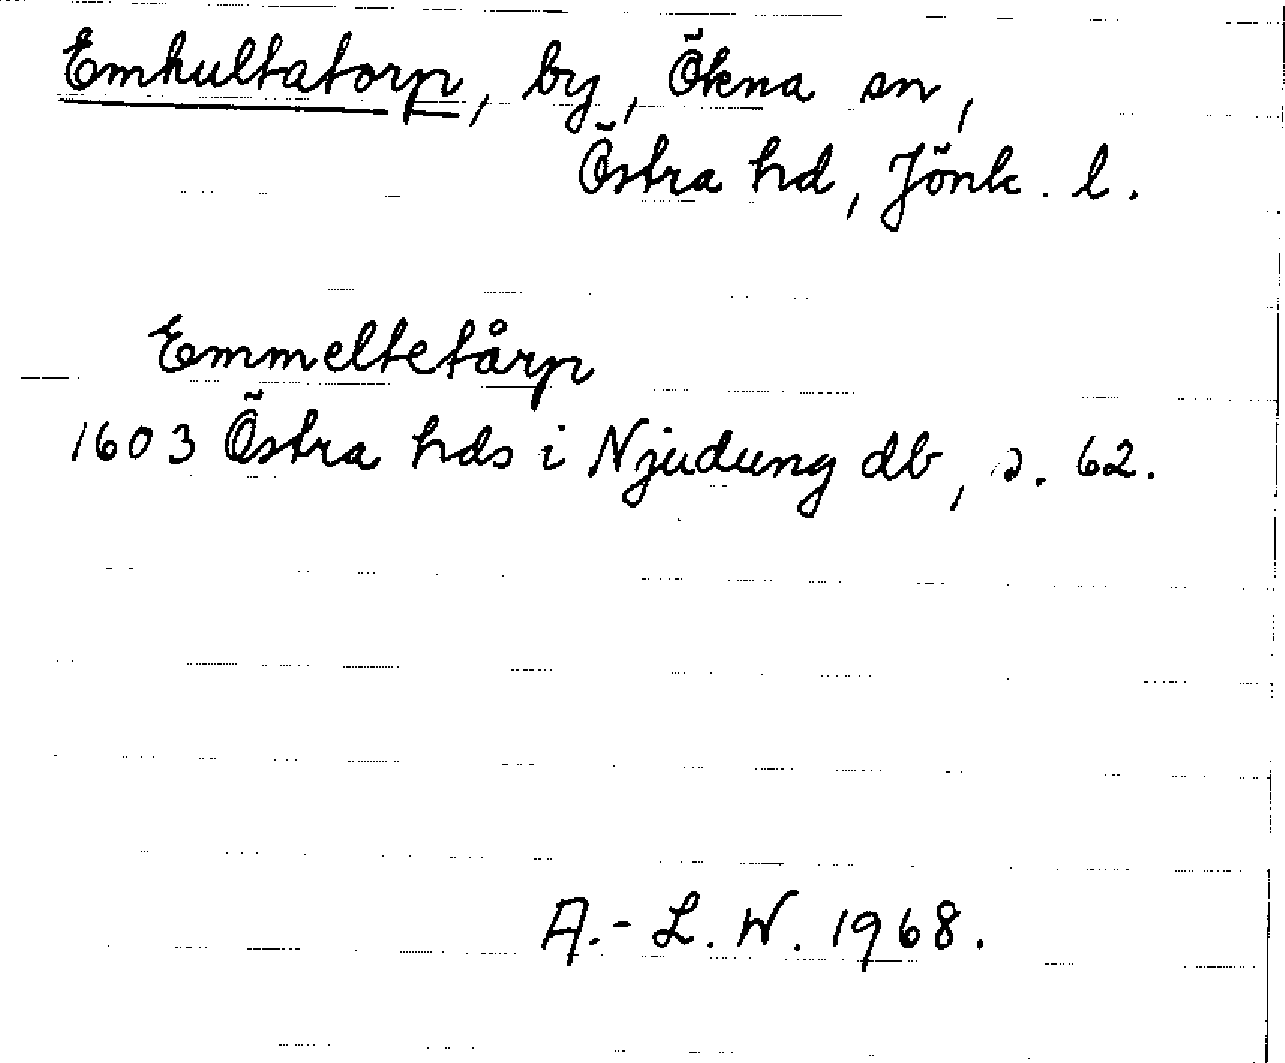 Emhultatorp, by, Ökna sn,
Östra hd, Jönk. l.
Emmeltetårp
1603 Östra hds i Njudung db, s. 62.
A.-L. W. 1968.